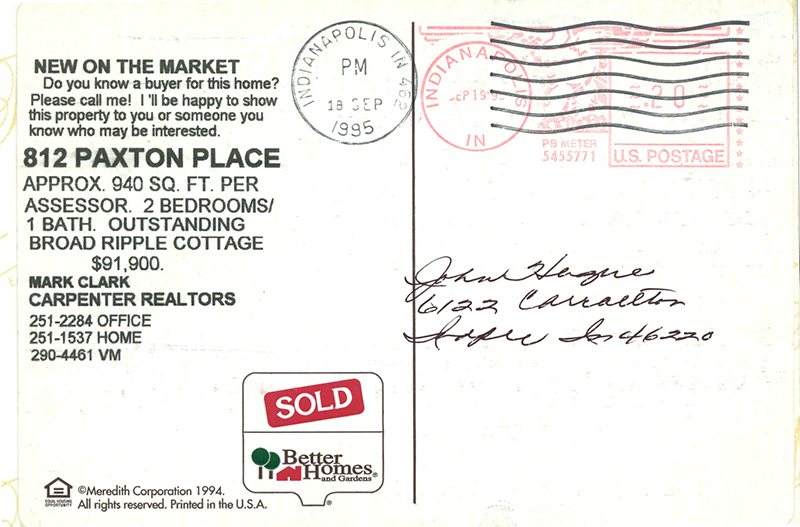 NEW ON THE MARKET
Do you know a buyer for this home?
Please call me! I 'll be happy to show
this property to you or someone you
know who may be interested.
812 PAXTON PLACE
APPROX. 940 SQ. FT. PER
ASSESSOR. 2 BEDROOMS/
1 BATH. OUTSTANDING
BROAD RIPPLE COTTAGE
$91,900.
MARK CLARK
CARPENTER REALTORS
251-2284 OFFICE
251-1537 HOME
290-4461 VM
SOLD
Better
Homes®
and Gardens®
®
EQUAL HOUSING
OPPORTUNITY
©Meredith Corporation 1994.
All rights reserved. Printed in the U.S.A.
INDIANAPOLIS IN 462
PM
18 SEP
1995
INDIANAPOLIS
SEP 19 95
IN
20
PB METER
5455771
U.S. POSTAGE
John Hague
6122 Carrollton
Indpls In 46220